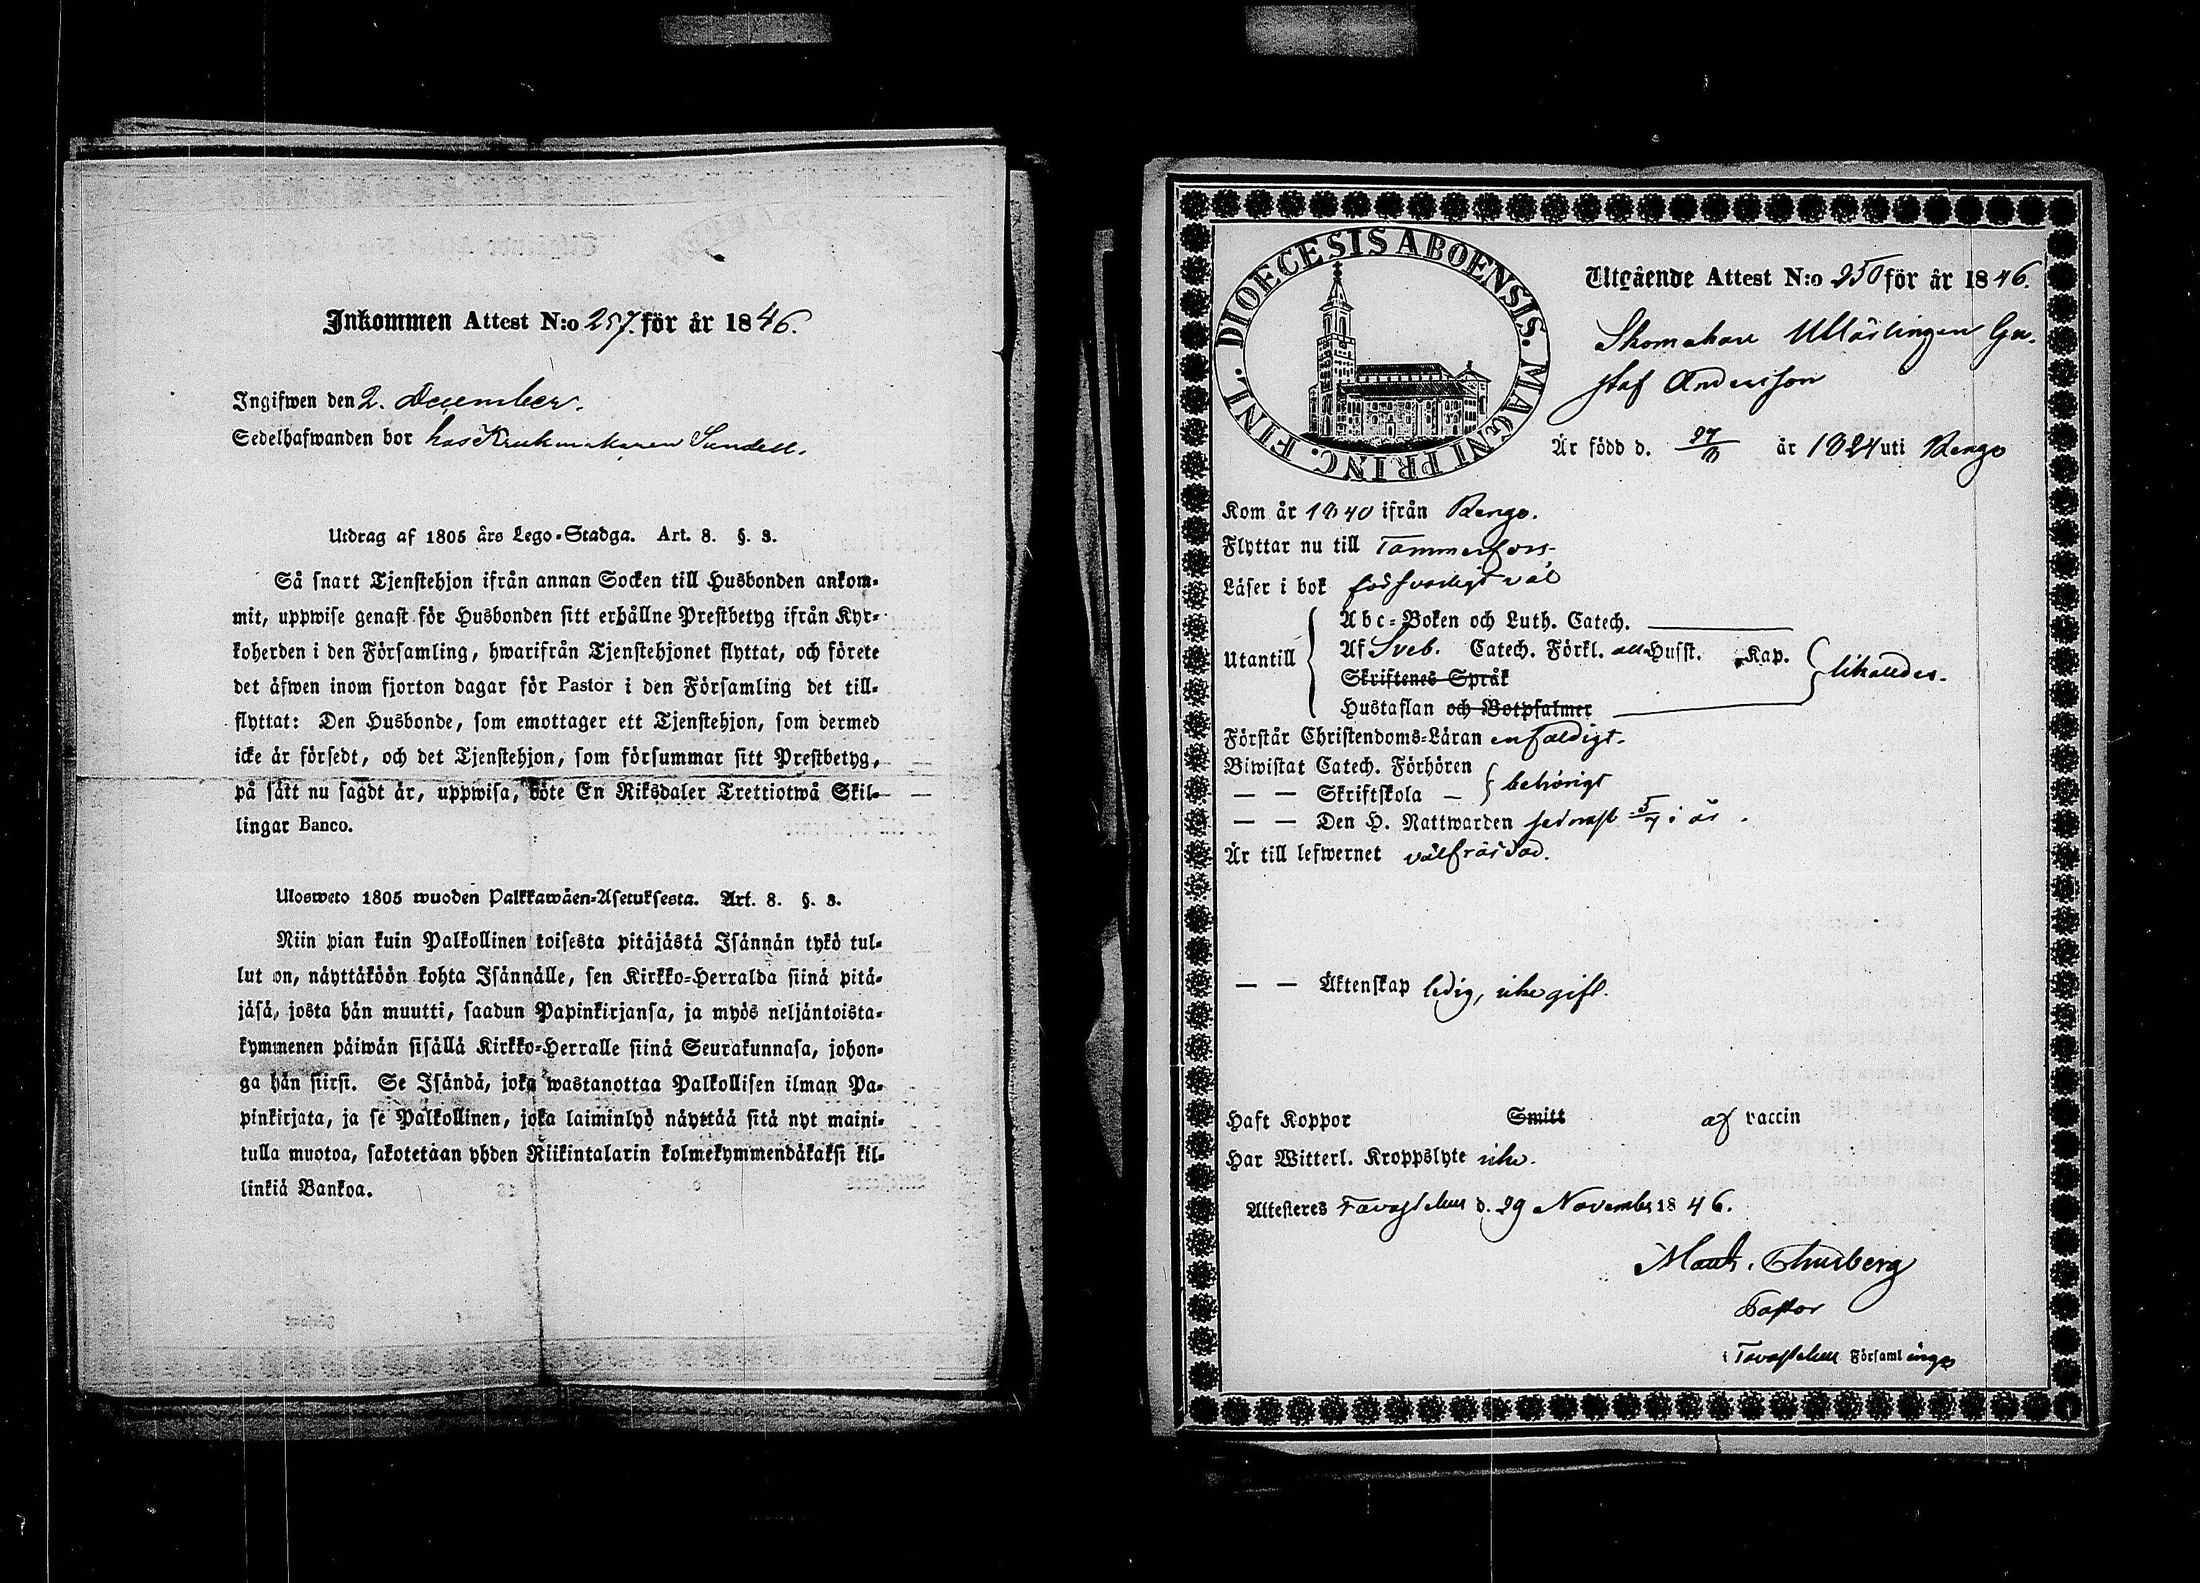 Inkommen Attest N:o 257. för år 1846.
Ingifwen den 2. December.
Sedelhafwanden bor hos Krukmakaren Sundell.
Utdrag af 1805 års Lego-Stadga. Art. 8. §. 3.
Så snart Tjenstehjon ifrån annan Socken till Husbonden ankom-
mit, uppwise genast för Husbonden sitt erhållne Prestbetyg ifrån Kyr-
koherden i den Församling, hwarifrån Tjenstehjonet flyttat, och förete
det äfwen inom fjorton dagar för Pastor i den Församling det till-
flyttat: Den Husbonde, som emottager ett Tjenstehjon, som dermed
icke är försedt, och det Tjenstehjon, som försummar sitt Prestbetyg,
på sätt nu sagdt är, uppwisa, böte En Riksdaler Trettiotwå Skil-
lingar Banco.
Ulosweto 1805 wuoden Palkkawäen-Asetuksesta. Art. 8. §. 3.
Niin pian kuin Palkollinen toisesta pitäjästä Isännän tykö tul-
lut on, näyttäköön kohta Isännälle, sen Kirkko-Herralda siinä pitä-
jäsä, josta hän muutti, saadun Papinkirjansa, ja myös neljäntoista-
kymmenen päiwän sisällä Kirkko-Herralle siinä Seurakunnasa, johon-
ga hän siirsi. Se Isändä, joka wastanottaa Palkollisen ilman Pa-
pinkirjata, ja se Palkollinen, joka laiminlyö näyttää sitä nyt maini-
tulla muotoa, sakotetaan yhden Riikintalarin kolmekymmendäkaksi kil-
linkiä Bankoa.
DIOECESIS ABOENSIS. MAGNI PRINC. FINL.
Utgående Attest N:o 250 för år 1846.
Skomakare Utlärlingen Gu-
staf Andersson
Är född d. 27/8 år 1824 uti Rengo
Kom år 1840 ifrån Rengo.
Flyttar nu till Tammerfors
Läser i bok försvarligt väl
Utantill
Abc-Boken och Luth. Catech.
Af Sveb. Catech. Förkl. all Husst. Kap.
Skriftenes Språk
Hustaflan och Botpsalmer
likaledes.
Förstår Christendoms-Läran enfaldigt.
Biwistat Catech. Förhören
— — Skriftskola —
behörigt
— — Den H. Nattwarden sednast 5/7 i år.
Är till lefwernet välfräjdad.
— — Äktenskap ledig, icke gift.
Haft Koppor Smitt af vaccin
Har Witterl. Kroppslyte icke.
Attesteres Tavastehus d. 29 November 1846.
Math. Thurberg
Pastor
i Tavastehus Församlings